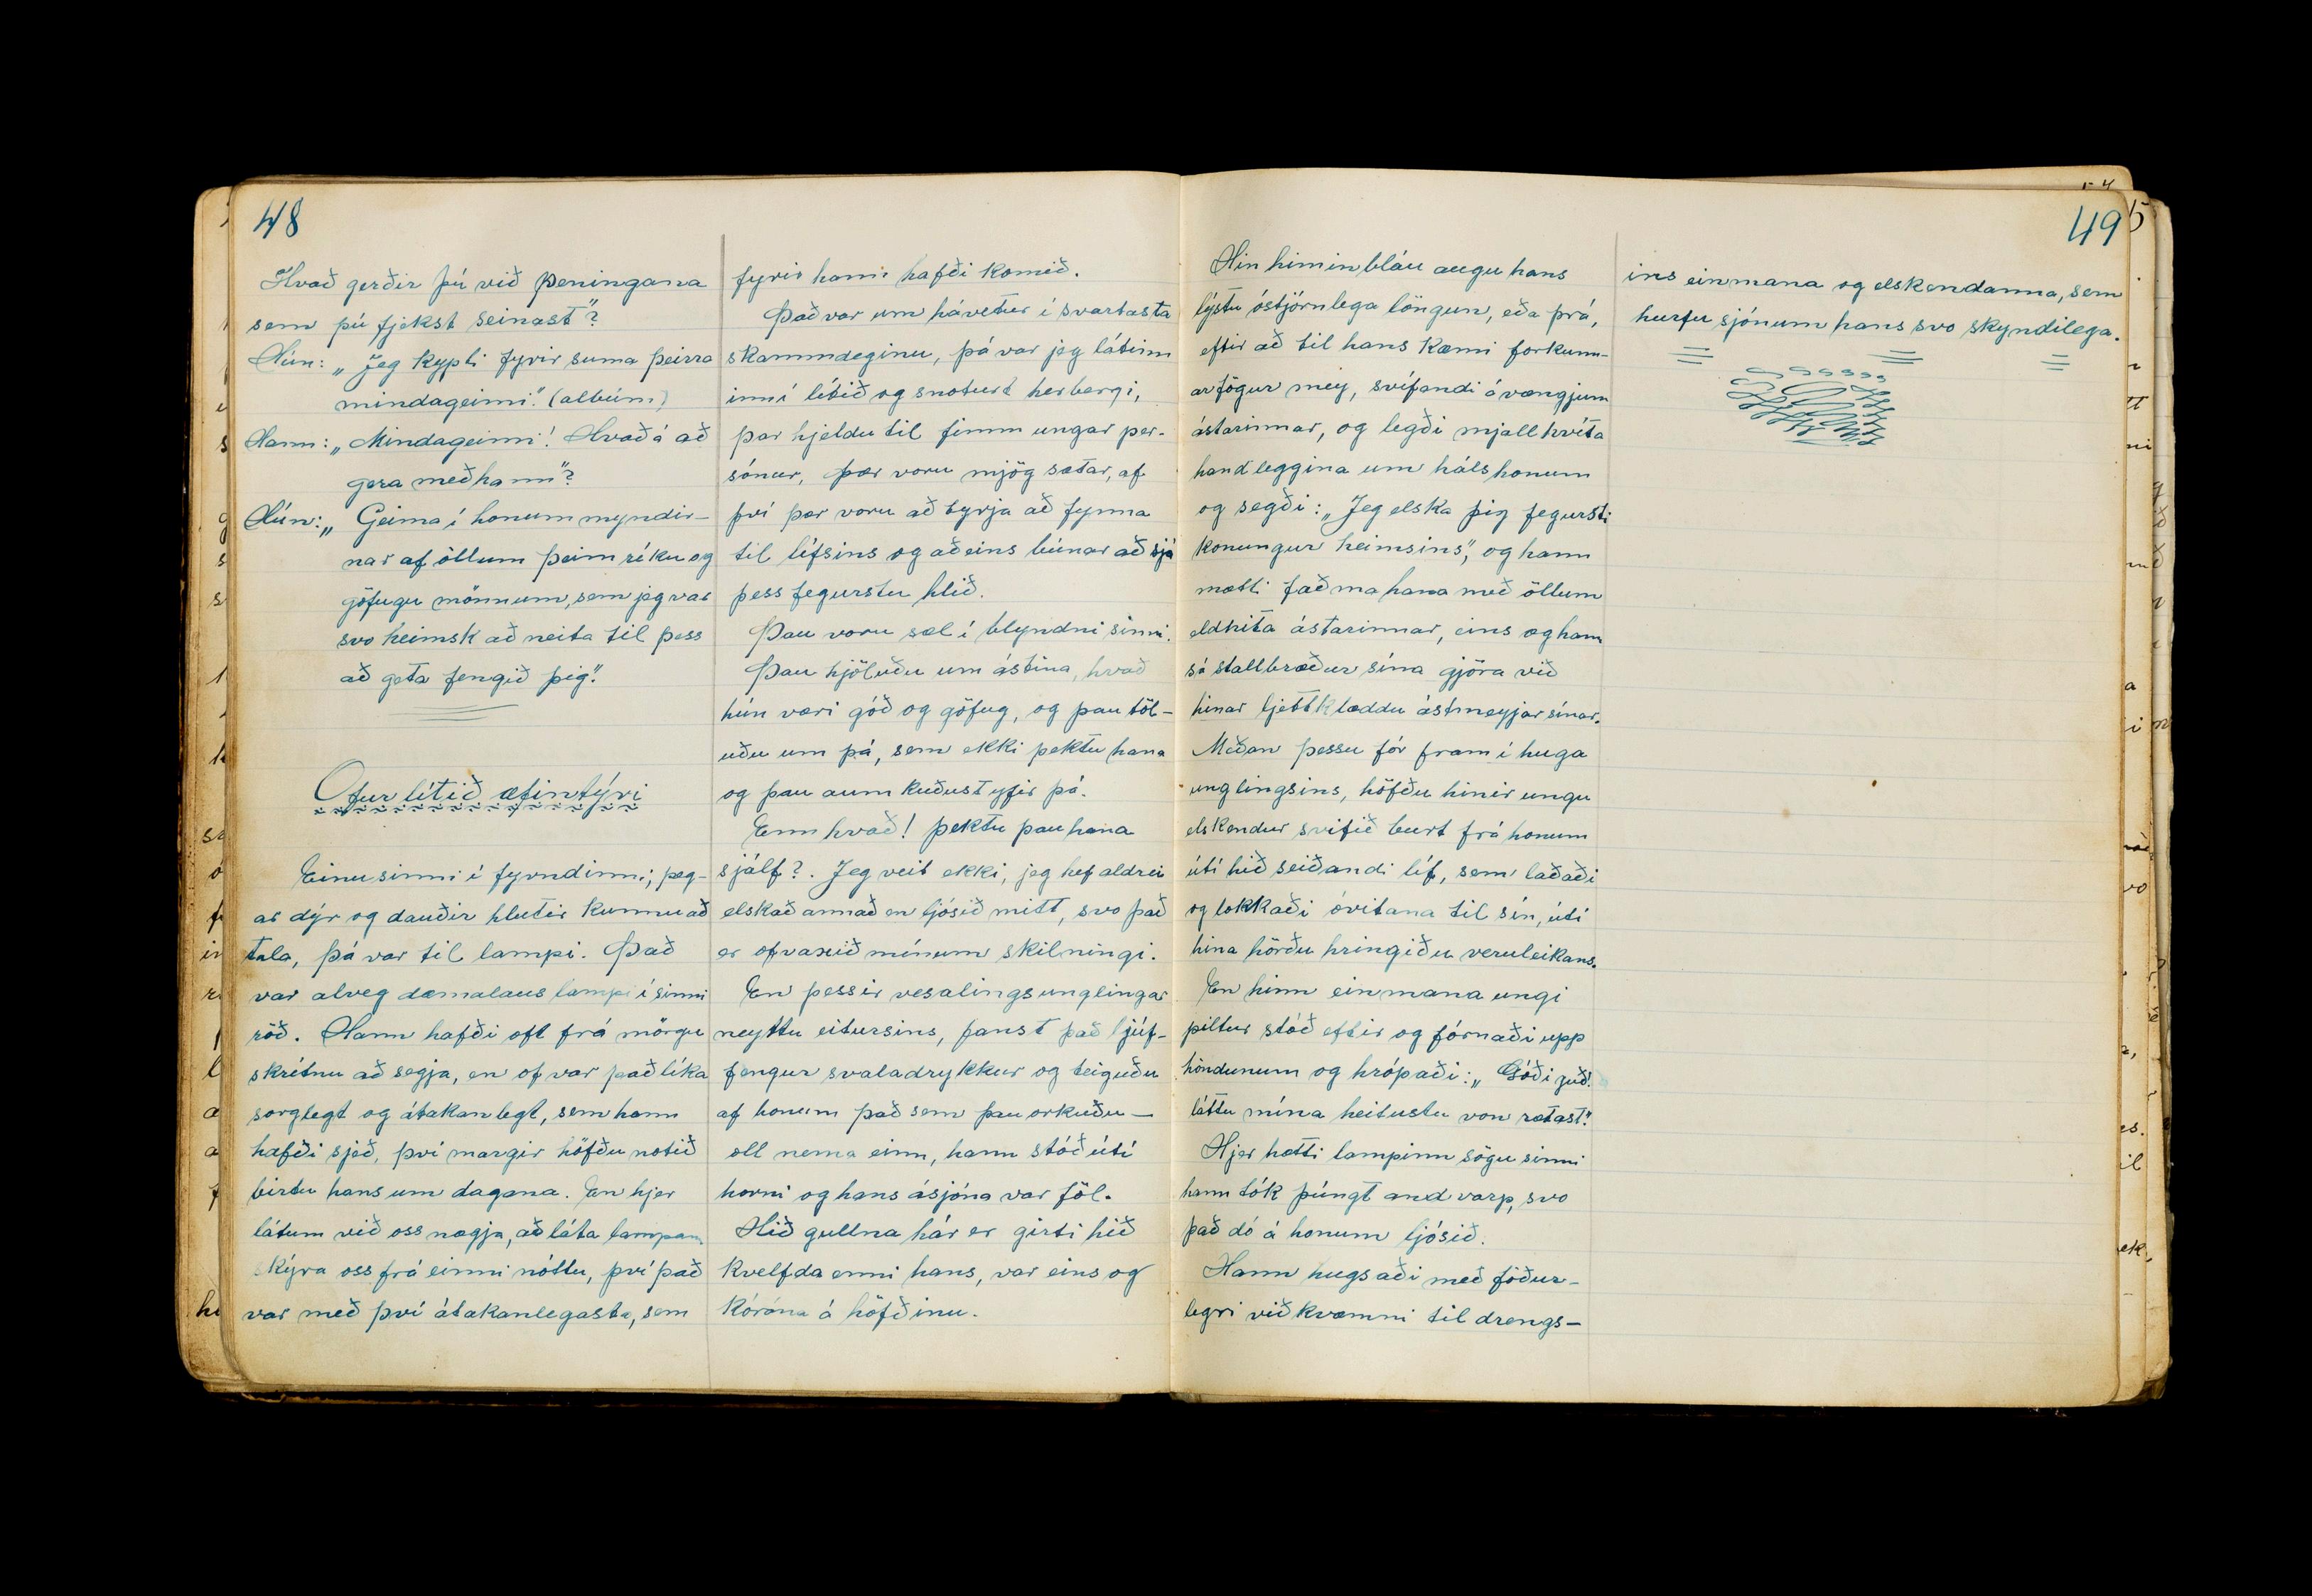 48
Hvað gerðir þú við peningana
sem þú fjekst seinast"?
Hún: „Jeg kypti fyrir suma þeirra
mindageimi". (albúm)
Hann: „Mindageimi! Hvað á að
gera með hann"?
Hún: „Geima í honum myndir-
nar af öllum þeim ríku og
göfugu mönnum, sem jeg var
svo heimsk að neita til þess
að geta fengið þig".
Ofur lítið æfintýri
Einu sinni í fyrndinni, þeg-
ar dýr og dauðir hlutir kunnu að
tala, þá var til lampi. Það
var alveg dæmalaus lampi í sinni
röð. Hann hafði oft frá mörgu
skrítnu að segja, en of var það líka
sorglegt og átakanlegt, sem hann
hafði sjeð, því margir höfðu notið
birtu hans um dagana. En hjer
látum við oss nægja, að láta lampan
skýra oss frá einni nóttu, því það
var með því átakanlegasta, sem
fyrir hann hafði komið.
Það var um hávetur í svartasta
skammdeginu, þá var jeg látinn
inní lítið og snoturt herbergi,
þar hjeldu til fimm ungar per-
sónur, þær voru mjög sætar, af
því þær voru að byrja að fynna
til lífsins og aðeins búnar að sjá
þess fegurstu hlið.
Þau voru sæl í blyndni sinni.
Þau hjöluðu um ástina, hvað
hún væri góð og göfug, og þau töl-
uðu um þá, sem ekki þektu hana
og þau aumkuðust yfir þá.
Enn hvað! þektu þau hana
sjálf?. Jeg veit ekki, jeg hef aldrei
elskað annað en ljósið mitt, svo það
er ofvaxið mínum skilningi.
En þessir vesalings unglingar
neyttu eitursins, fanst það ljúf-
fengur svaladrykkur og teiguðu
af honum það sem þau orkuðu —
oll nema einn, hann stóð útí
horni og hans ásjóna var föl.
Hið gullna hár er girti hið
kvelfda enni hans, var eins og
kóróna á höfðinu.
49
Hin himinbláu augu hans
lýstu óstjórnlega löngun, eða þrá,
eftir að til hans kæmi forkunn-
arfögur mey, svífandi á vængjum
ástarinnar, og legði mjallhvíta
handleggina um háls honum
og segði: „Jeg elska þig fegursti
konungur heimsins", og hann
mætti faðma hana með öllum
eldhita ástarinnar, eins og hann
sá stallbræður sína gjöra við
hinar ljettklæddu ástmeyjar sínar.
Meðan þessu fór fram í huga
unglingsins, höfðu hinir ungu
elskendur svifið burt frá honum
útí hið seiðandi líf, sem laðaði
og lokkaði óvitana til sín, útí
hina hörðu hringiðu veruleikans.
En hinn einmana ungi
piltur stóð eftir og fórnaði upp
höndunum og hrópaði: „Góði guð!
láttu mína heitustu von rætast".
Hjer hætti lampinn sögu sinni
hann tók þúngt andvarp, svo
það dó á honum ljósið.
Hann hugsaði með föður-
legri viðkvæmni til drengs-
ins einmana og elskendanna, sem
hurfu sjónum hans svo skyndilega.